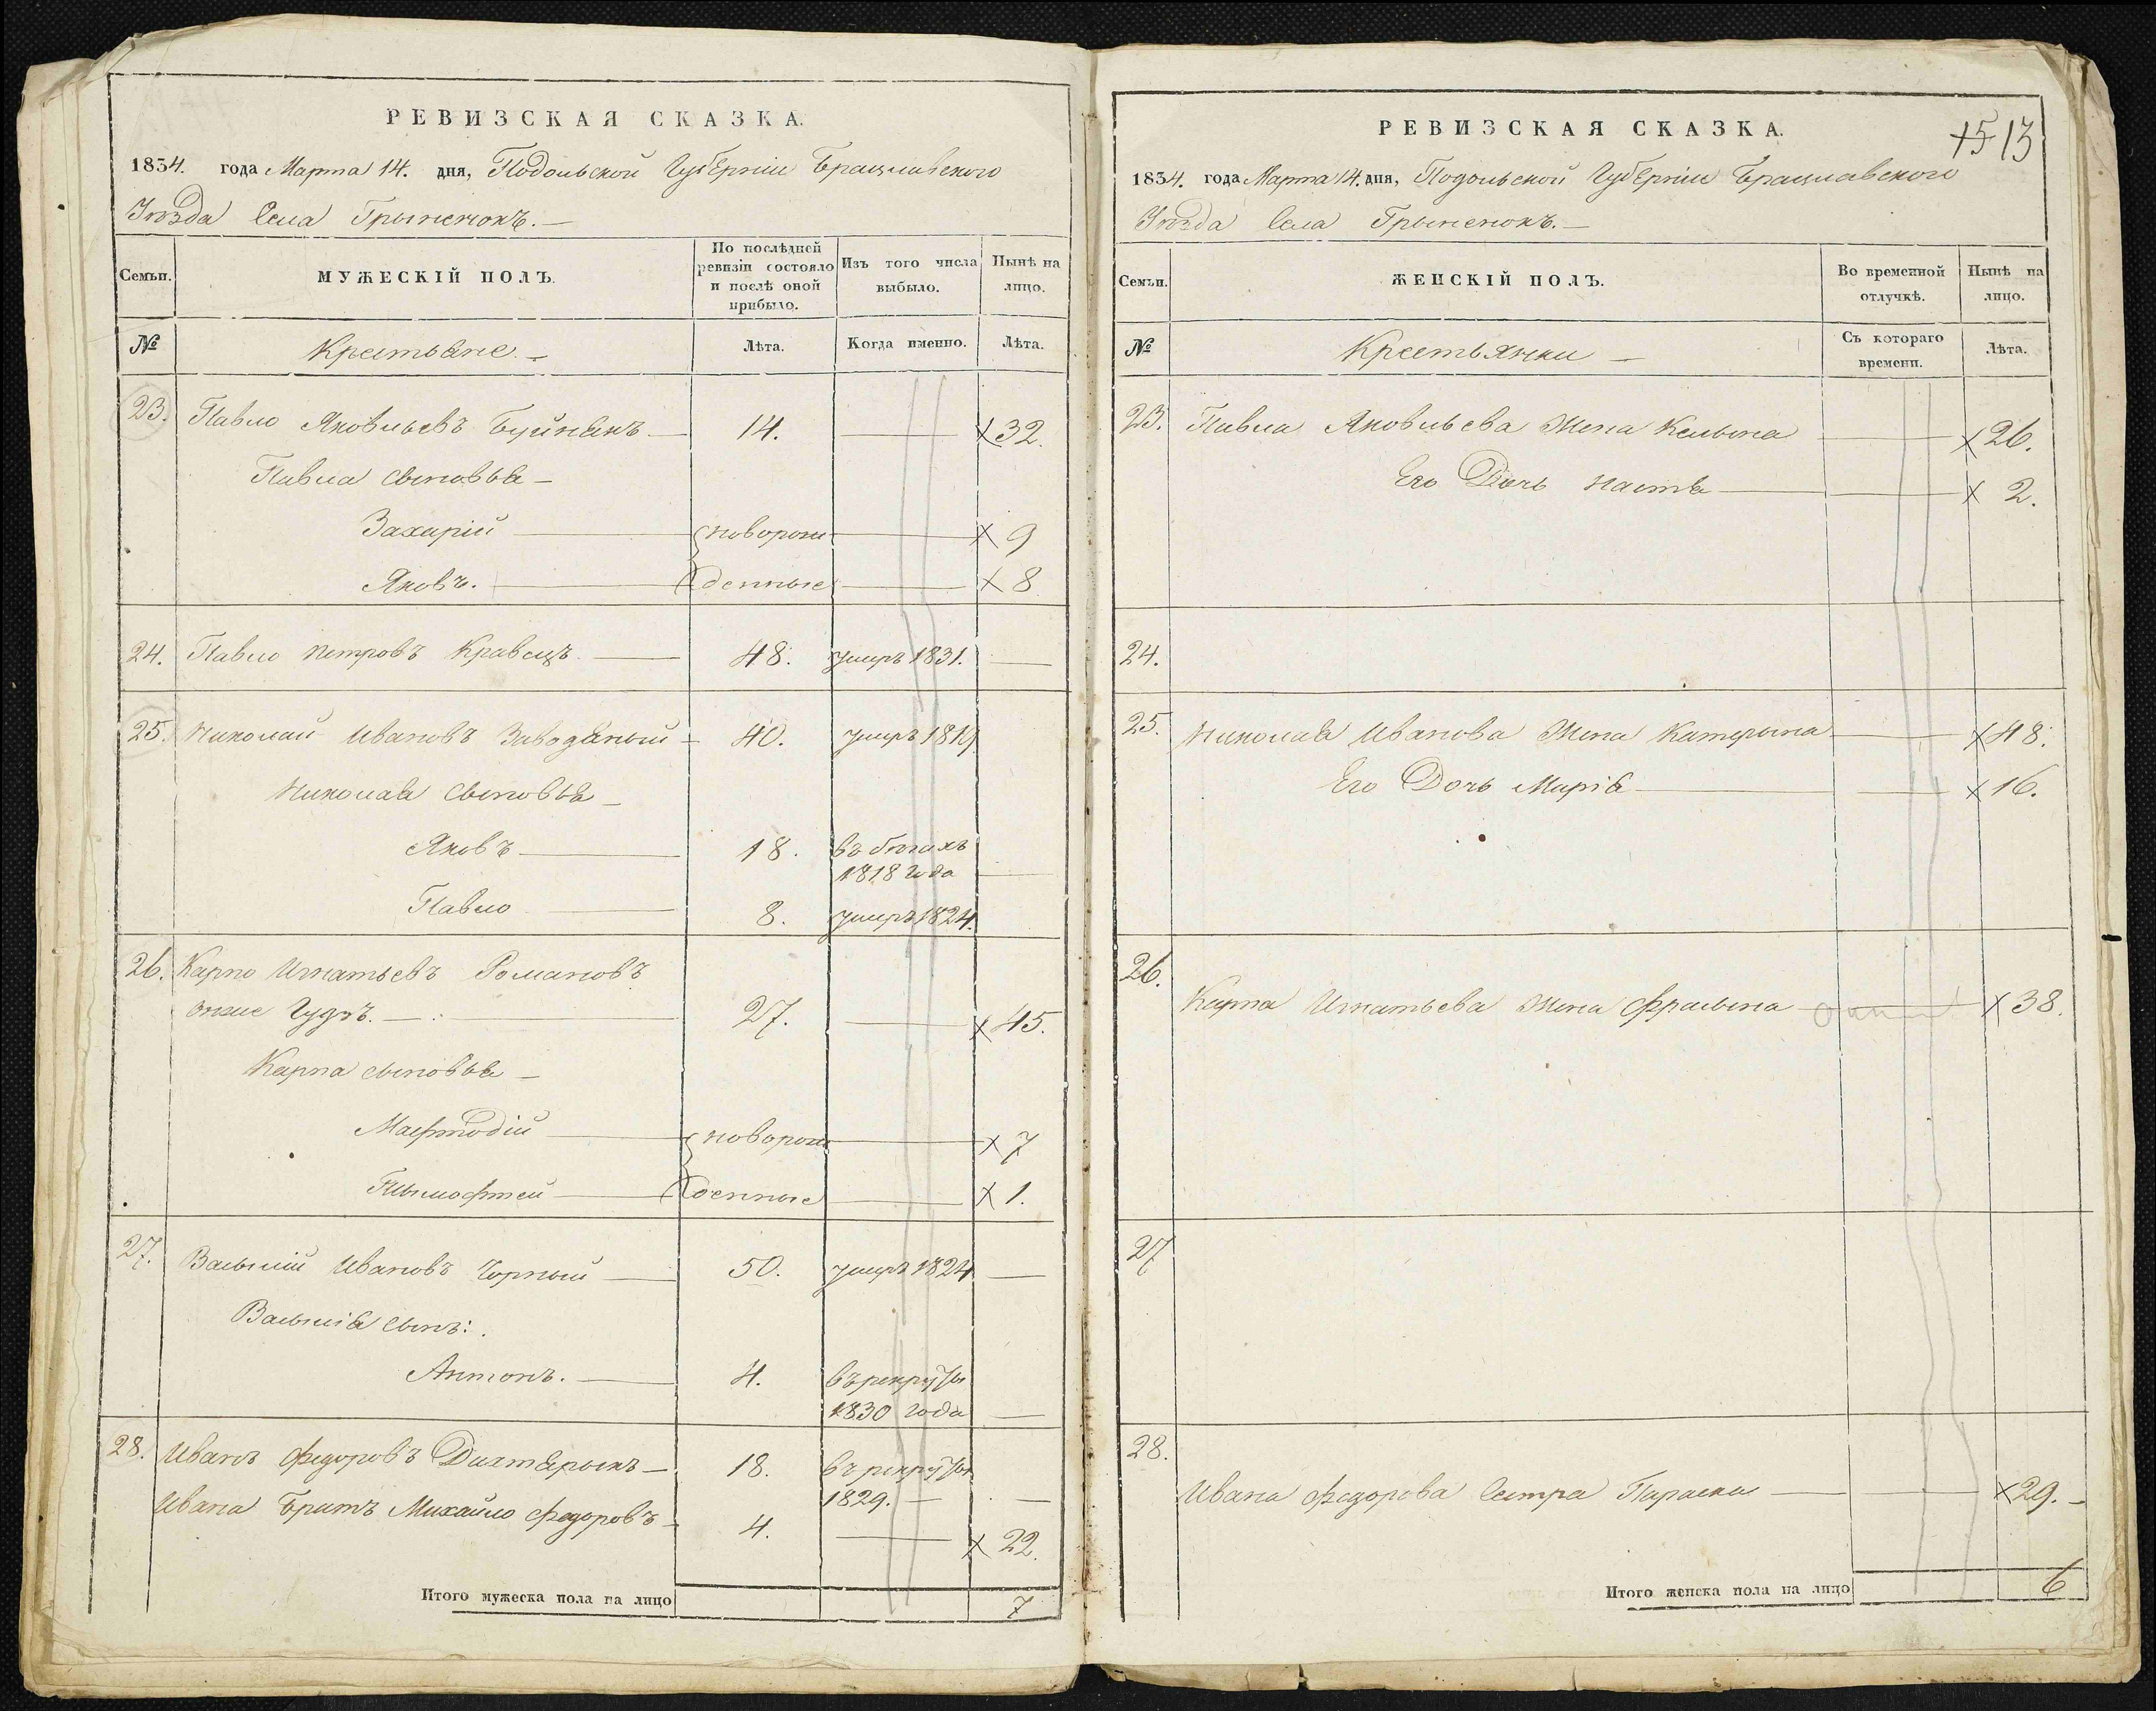 РЕВИЗСКАЯ СКАЗКА.
1834. года Марта 14. дня, Подольской Губерніи Брацлавского
Уѣзда Села Грыненокъ. —
Семьи.
МУЖЕСКІЙ ПОЛЪ.
По послѣдней ревизіи состояло и послѣ оной прибыло.
Изъ того числа выбыло.
Нынѣ на лицо.
№
Крестьяне. —
Лѣта.
Когда именно.
Лѣта.
23. Павло Яковльевъ Буйнякъ — 14. — х 32.
Павла сыновья —
Захарій — новорож — х 9
Яковъ. — денные — х 8
24. Павло Петровъ Кравецъ — 48. умеръ 1831. —
25. Николай Ивановъ Заводяный — 40. умеръ 1819
Николая сыновья —
Яковъ — 18. въ бѣгахъ
1818 года —
Павло — 8. умеръ 1824.
26. Карпо Игнатьевъ Романовъ
онже Гудзъ. — 27. — х 45.
Карпа сыновья —
Мафтодій — новорож — х 7
Тымофтей — денные — х 1.
27. Васылій Ивановъ Чорный — 50. умеръ 1824 —
Васылія сынъ:
Антонъ. — 4. въ рекруты
1830 года —
28. Иванъ Федоровъ Дихтярыкъ — 18. въ рекруты
1829. — —
Ивана Братъ Михайло Федоровъ — 4. — х 22.
Итого мужеска пола на лицо 7
РЕВИЗСКАЯ СКАЗКА.
15 13
1834. года Марта 14. дня, Подольской Губерніи Брацлавского
Уѣзда Села Грыненокъ. —
Семьи.
ЖЕНСКІЙ ПОЛЪ.
Во временной отлучкѣ.
Нынѣ на лицо.
№
Крестьянки —
Съ котораго времени.
Лѣта.
23. Павла Яковльева Жена Келына — х 26.
Его Дочь Настя — х 2.
24.
25. Николая Иванова Жена Катерына — х 48.
Его Дочь Марія — х 16.
26.
Карпа Игнатьева Жена Фрасына — х 38.
27
28.
Ивана Федорова Сестра Параска — х 29. —
Итого женска пола на лицо 6